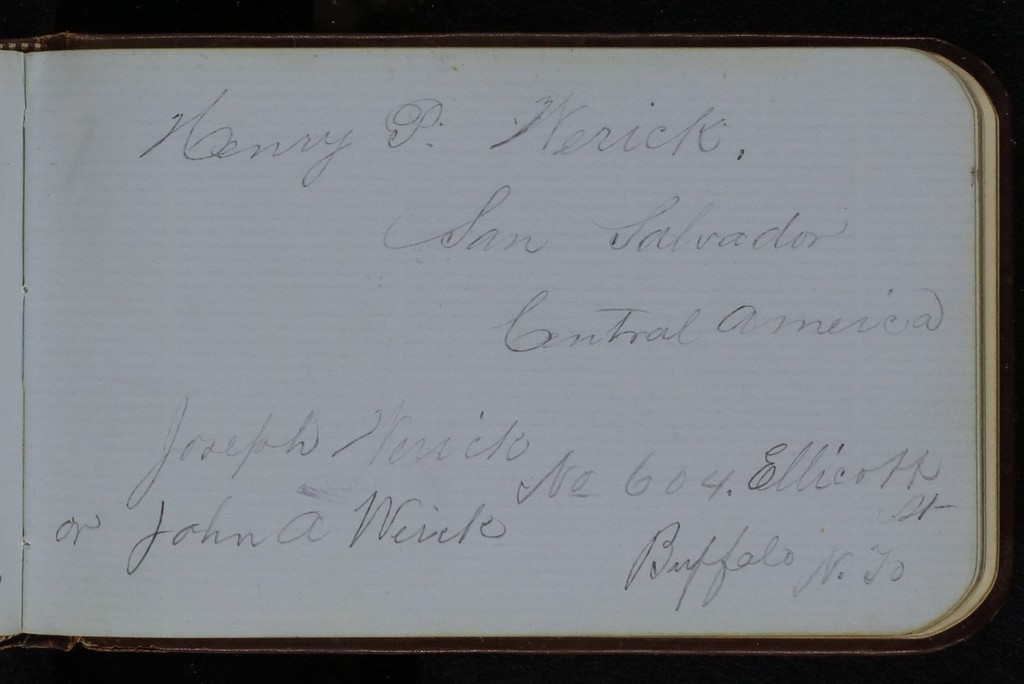 Henry P. Werick,
San Salvador
Central Ameica
Joseph Werick
or John A Werick
No 604. Ellicott
St
Buffalo N. Yo